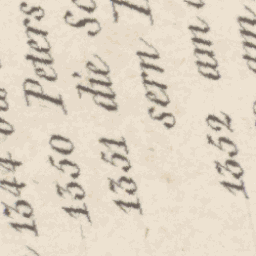 1344
1350 Peters
1351 die
sern
am
1352 am